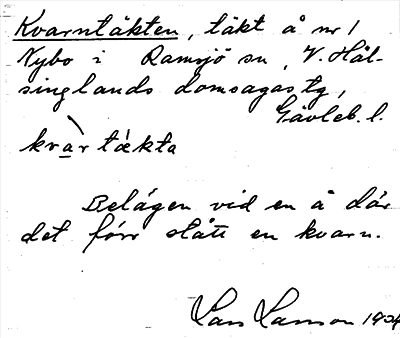 Kvarntäkten, täkt å nr 1
Nybo i Ramsjö sn, V. Häl-
singlands domsagas tg,
Gävleb. l.
kvàrtækta
Belägen vid en å där
det förr stått en kvarn.
Lars Larsson